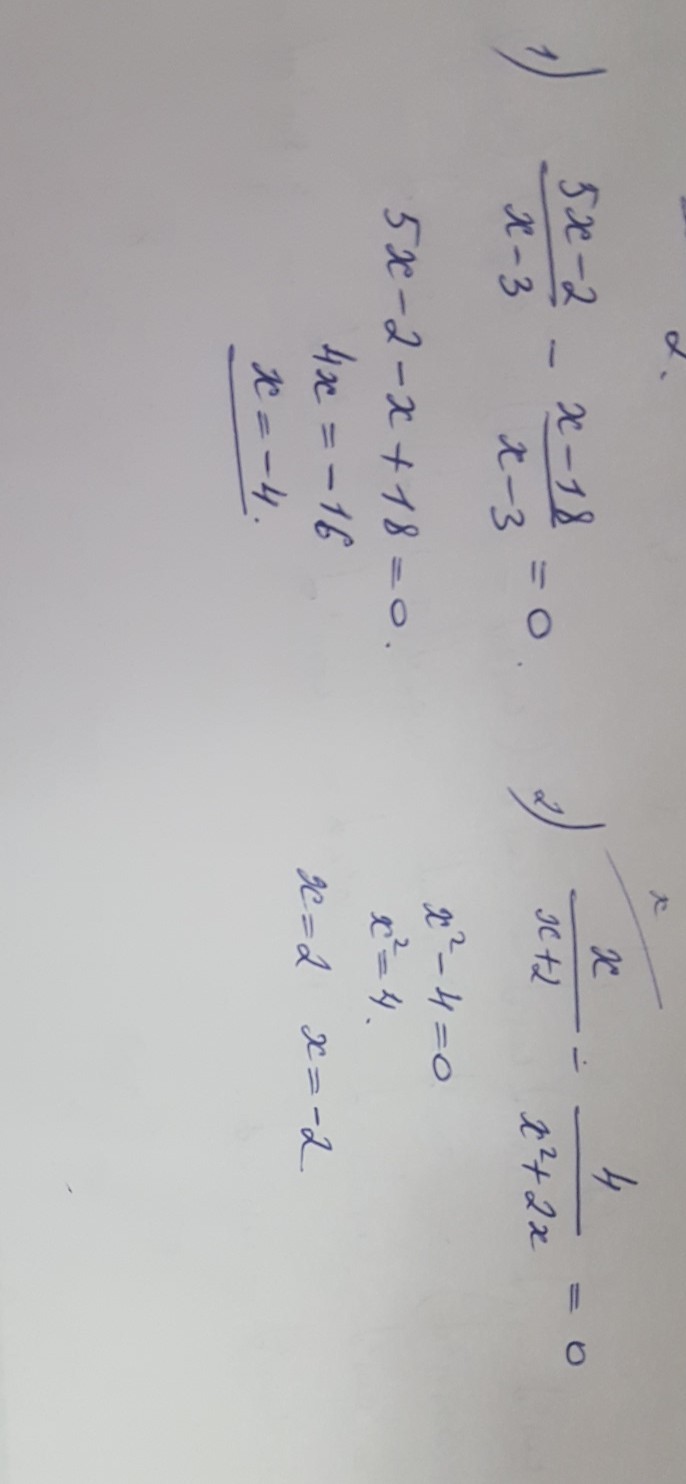 2.
1) (5x-2)/(x-3) - (x-18)/(x-3) = 0.
5x-2-x+18=0.
4x=-16
x=-4.
x
2) x/(x+2) - 4/(x²+2x) = 0
x²-4=0
x²=4.
x=2 x=-2